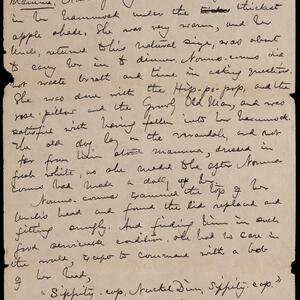 in her hammock under the thickest
apple shade. She was very warm, and her
Uncle, returned to his natural size, was about
to carry her in to dinner. Nonno-connno did
not waste breath and time in asking questions.
She was done with the Hip-po-pop, and the
rose-pillow and the Growly Old Man, and was
satisfied with having fallen into her hammock.
The old dog lay on the verandah, and not
far from him stood mamma, dressed in
fresh white, as she made the
had made a doll,
examined the top of her
Uncle's head and found the lid replaced and
fitting snugly. And finding him in such
good serviceable condition, she had no care in
the world, except to command with a bob
of her head,
"Sippity-cop, Nuckel Dim, Sippity-cop."